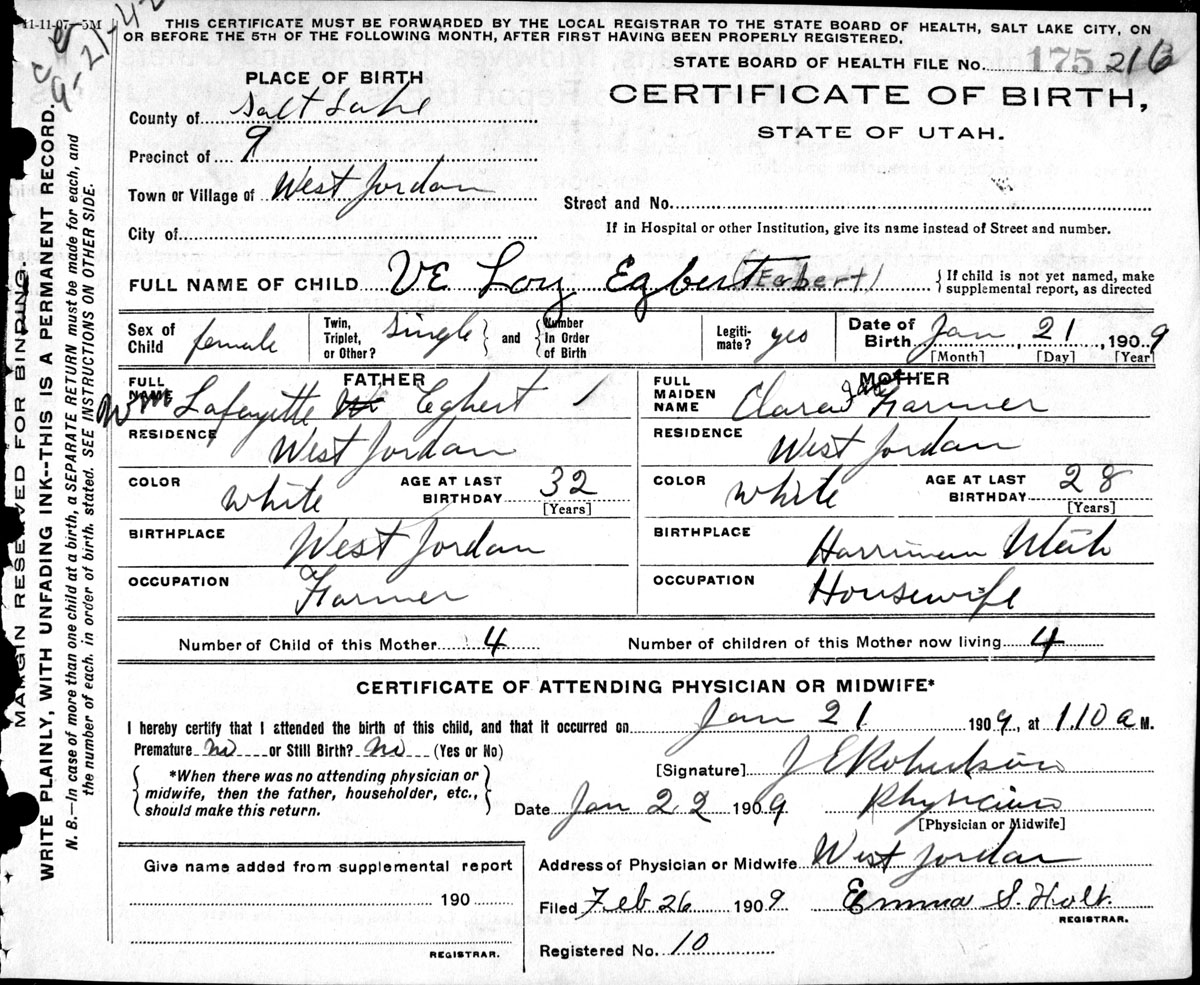 11-11-07—5M
THIS CERTIFICATE MUST BE FORWARDED BY THE LOCAL REGISTRAR TO THE STATE BOARD OF HEALTH, SALT LAKE CITY, ON
OR BEFORE THE 5TH OF THE FOLLOWING MONTH, AFTER FIRST HAVING BEEN PROPERLY REGISTERED.
STATE BOARD OF HEALTH FILE No. 175 216
CERTIFICATE OF BIRTH,
STATE OF UTAH.
PLACE OF BIRTH
County of Salt Lake
Precinct of 9
Town or Village of West Jordan
City of
Street and No.
If in Hospital or other Institution, give its name instead of Street and number.
FULL NAME OF CHILD VE Loy Egbert (Egbert) {If child is not yet named, make supplemental report, as directed
Sex of Child female Twin, Triplet, or Other? Single } and { Number In Order of Birth Legitimate? yes Date of Birth Jan 21, 1909
[Month] [Day] [Year]
FATHER
FULL NAME Wm Lafayette Egbert
RESIDENCE West Jordan
COLOR white AGE AT LAST BIRTHDAY 32
[Years]
BIRTHPLACE West Jordan
OCCUPATION Farmer
MOTHER
FULL MAIDEN NAME Clara Jane Farmer
RESIDENCE West Jordan
COLOR white AGE AT LAST BIRTHDAY 28
[Years]
BIRTHPLACE Harriman Utah
OCCUPATION Housewife
Number of Child of this Mother 4 Number of children of this Mother now living 4
CERTIFICATE OF ATTENDING PHYSICIAN OR MIDWIFE*
I hereby certify that I attended the birth of this child, and that it occurred on Jan 21 1909, at 1.10 a M.
Premature No or Still Birth? No (Yes or No)
{*When there was no attending physician or
midwife, then the father, householder, etc.,
should make this return.}
[Signature] J E Robertson
Date Jan 22 1909 Physician
[Physician or Midwife]
Address of Physician or Midwife West Jordan
Filed Feb 26 1909 Emma S. Holt.
REGISTRAR.
Registered No. 10
Give name added from supplemental report
190
REGISTRAR.
MARGIN RESERVED FOR BINDING.
WRITE PLAINLY, WITH UNFADING INK--THIS IS A PERMANENT RECORD.
N. B.—In case of more than one child at a birth, a SEPARATE RETURN must be made for each, and
the number of each, in order of birth, stated. SEE INSTRUCTIONS ON OTHER SIDE.